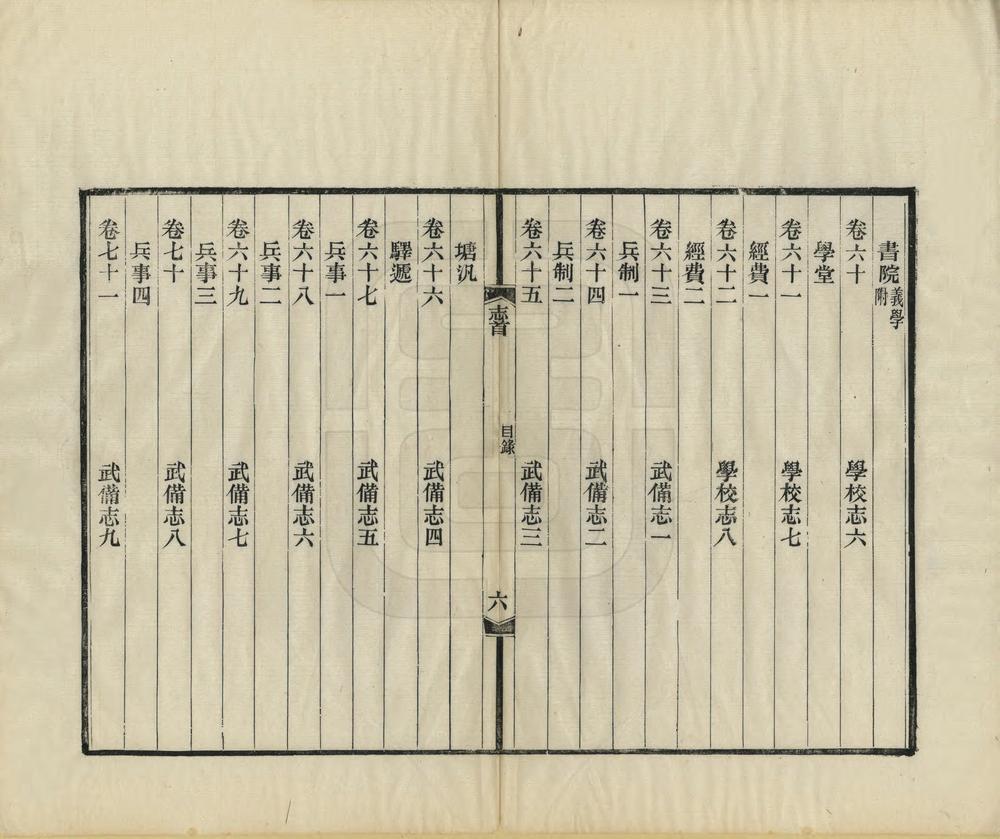 書院義學附
卷六十　學校志六
學堂
卷六十一　學校志七
經費一
卷六十二　學校志八
經費二
卷六十三　武備志一
兵制一
卷六十四　武備志二
兵制二
卷六十五　武備志三
志首　目錄　六
塘汛
卷六十六　武備志四
驛遞
卷六十七　武備志五
兵事一
卷六十八　武備志六
兵事二
卷六十九　武備志七
兵事三
卷七十　武備志八
兵事四
卷七十一　武備志九